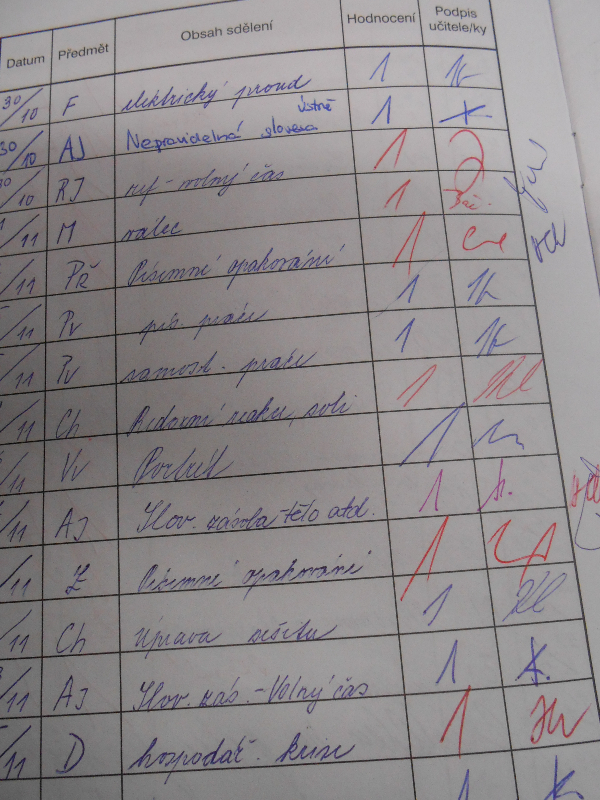 Datum Předmět Obsah sdělení Hodnocení Podpis učitele/ky
30/10 F elektrický proud 1
30/10 AJ Nepravidelná slovesa ústně 1
30/10 RJ ref - volný čas 1
/11 M válec 1
/11 Př Písemné opakování 1
/11 Pv pís. práce 1
/11 Pv samost. práce 1
/11 Ch Redoxní reakce, soli 1
/11 Vv Portrét 1
/11 AJ Slov. zásoba tělo atd. 1
/11 Z Písemné opakování 1
/11 Ch Úprava sešitu 1
/11 AJ Slov. zás. - Volný čas 1
/11 D hospodář. krize 1
1